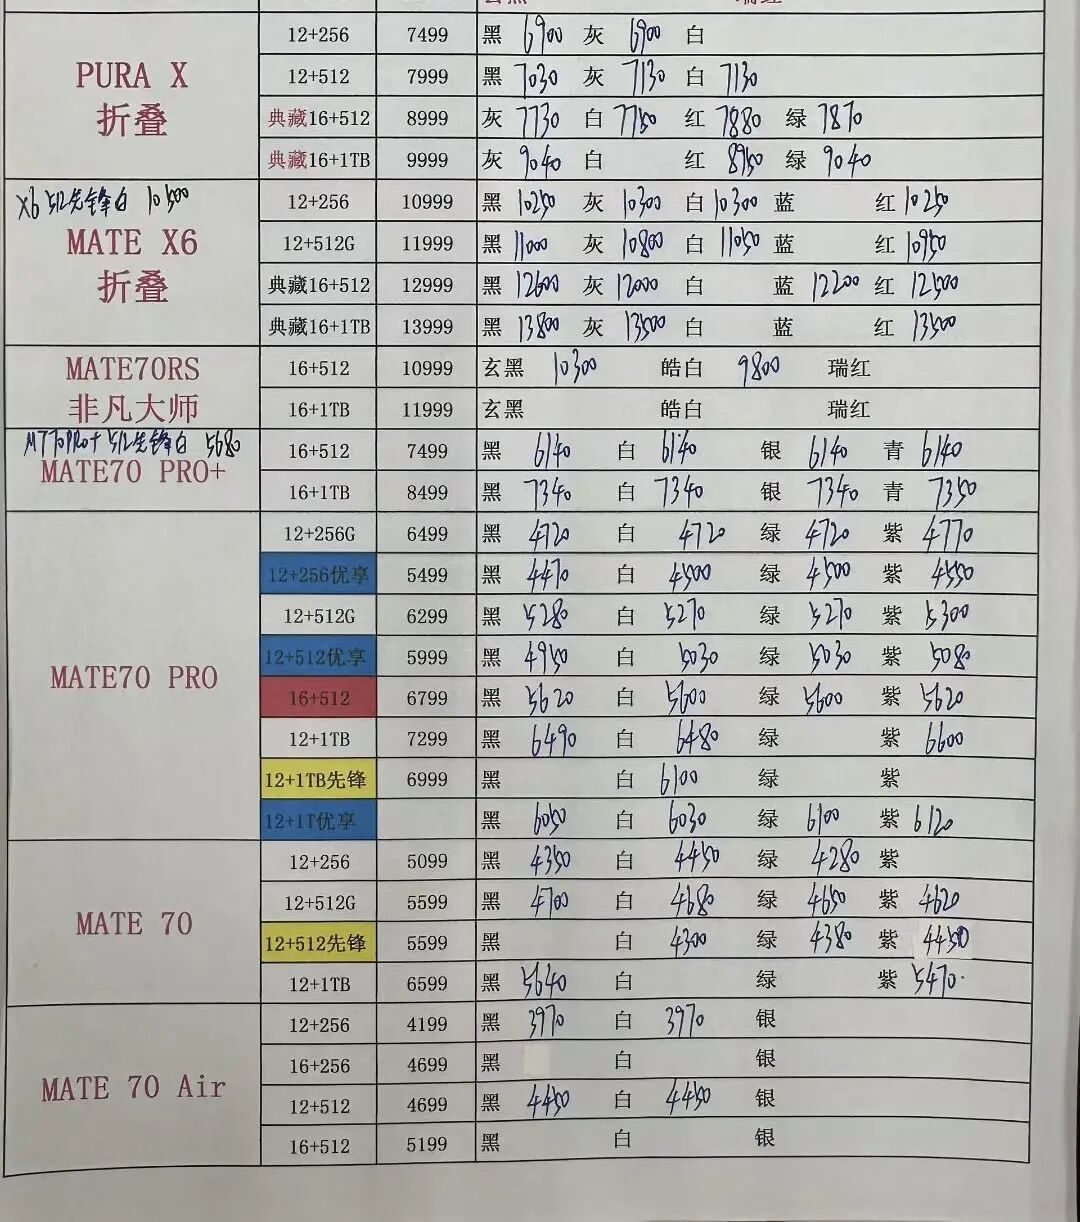 瑞红
PURA X
折叠
12+256 7499 黑 6900 灰 6900 白
12+512 7999 黑 7030 灰 7130 白 7130
典藏16+512 8999 灰 7730 白 7750 红 7880 绿 7870
典藏16+1TB 9999 灰 9040 白 红 8950 绿 9040
X6 512先锋白 10500
MATE X6
折叠
12+256 10999 黑 10250 灰 10300 白 10300 蓝 红 10250
12+512G 11999 黑 11000 灰 10800 白 11050 蓝 红 10950
典藏16+512 12999 黑 12600 灰 12000 白 蓝 12200 红 12500
典藏16+1TB 13999 黑 13800 灰 13500 白 蓝 红 13500
MATE70RS
非凡大师
16+512 10999 玄黑 10300 皓白 9800 瑞红
16+1TB 11999 玄黑 皓白 瑞红
MT70PRO+ 512先锋白 5680
MATE70 PRO+
16+512 7499 黑 6140 白 6140 银 6140 青 6140
16+1TB 8499 黑 7340 白 7340 银 7340 青 7350
MATE70 PRO
12+256G 6499 黑 4720 白 4720 绿 4720 紫 4770
12+256优享 5499 黑 4470 白 4500 绿 4500 紫 4550
12+512G 6299 黑 5280 白 5270 绿 5270 紫 5300
12+512优享 5999 黑 4950 白 5030 绿 5030 紫 5080
16+512 6799 黑 5620 白 5600 绿 5600 紫 5620
12+1TB 7299 黑 6490 白 6480 绿 紫 6600
12+1TB先锋 6999 黑 白 6100 绿 紫
12+1T优享 黑 6050 白 6030 绿 6100 紫 6120
MATE 70
12+256 5099 黑 4350 白 4450 绿 4280 紫
12+512G 5599 黑 4700 白 4680 绿 4650 紫 4620
12+512先锋 5599 黑 白 4300 绿 4380 紫 4450
12+1TB 6599 黑 5640 白 绿 紫 5470
MATE 70 Air
12+256 4199 黑 3970 白 3970 银
16+256 4699 黑 白 银
12+512 4699 黑 4450 白 4450 银
16+512 5199 黑 白 银